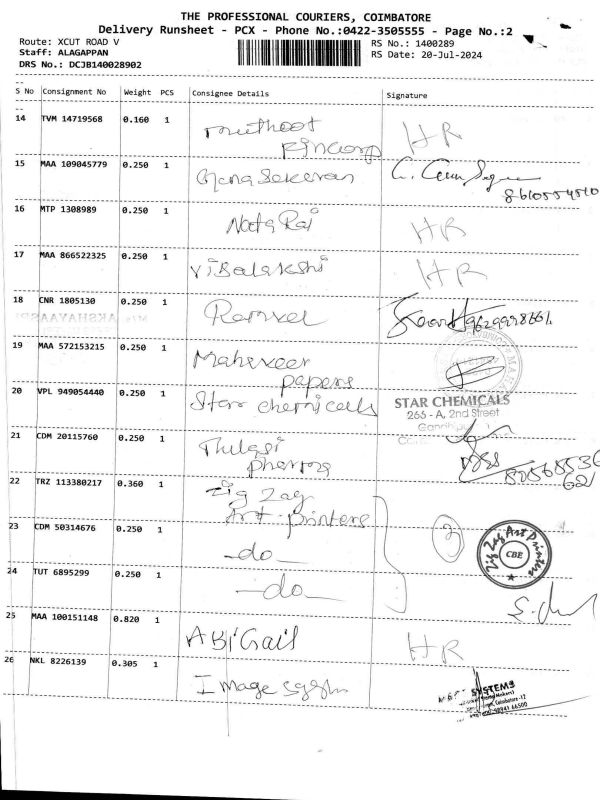 THE PROFESSIONAL COURIERS, COIMBATORE
Delivery Runsheet - PCX - Phone No.:0422-3505555 - Page No.:2
Route: XCUT ROAD V
RS No.: 1400289
Staff: ALAGAPPAN
RS Date: 20-Jul-2024
DRS No.: DCJB140028902
S No Consignment No Weight PCS Consignee Details Signature
14 TVM 14719568 0.160 1 Muthoot HR
Fincorp
15 MAA 109045779 0.250 1 Gnana Sekaran
16 MTP 1308989 0.250 1 Nata Raj HR
17 MAA 866522325 0.250 1 Vibalakshi HR
18 CNR 1805130 0.250 1 Ramvel 9629998661
19 MAA 572153215 0.250 1 Mahaveer
papers
20 VPL 949054440 0.250 1 Star chemicals STAR CHEMICALS
265 - A, 2nd Street
21 CDM 20115760 0.250 1 Thulasi
pharma
22 TRZ 113380217 0.360 1 Zig Zag
Art printers
23 CDM 50314676 0.250 1 -do-
3
Zig Zag Art Printers
CBE
24 TUT 6895299 0.250 1 -do-
25 MAA 100151148 0.820 1 Abigail HR
26 NKL 8226139 0.305 1 Image system
SYSTEMS